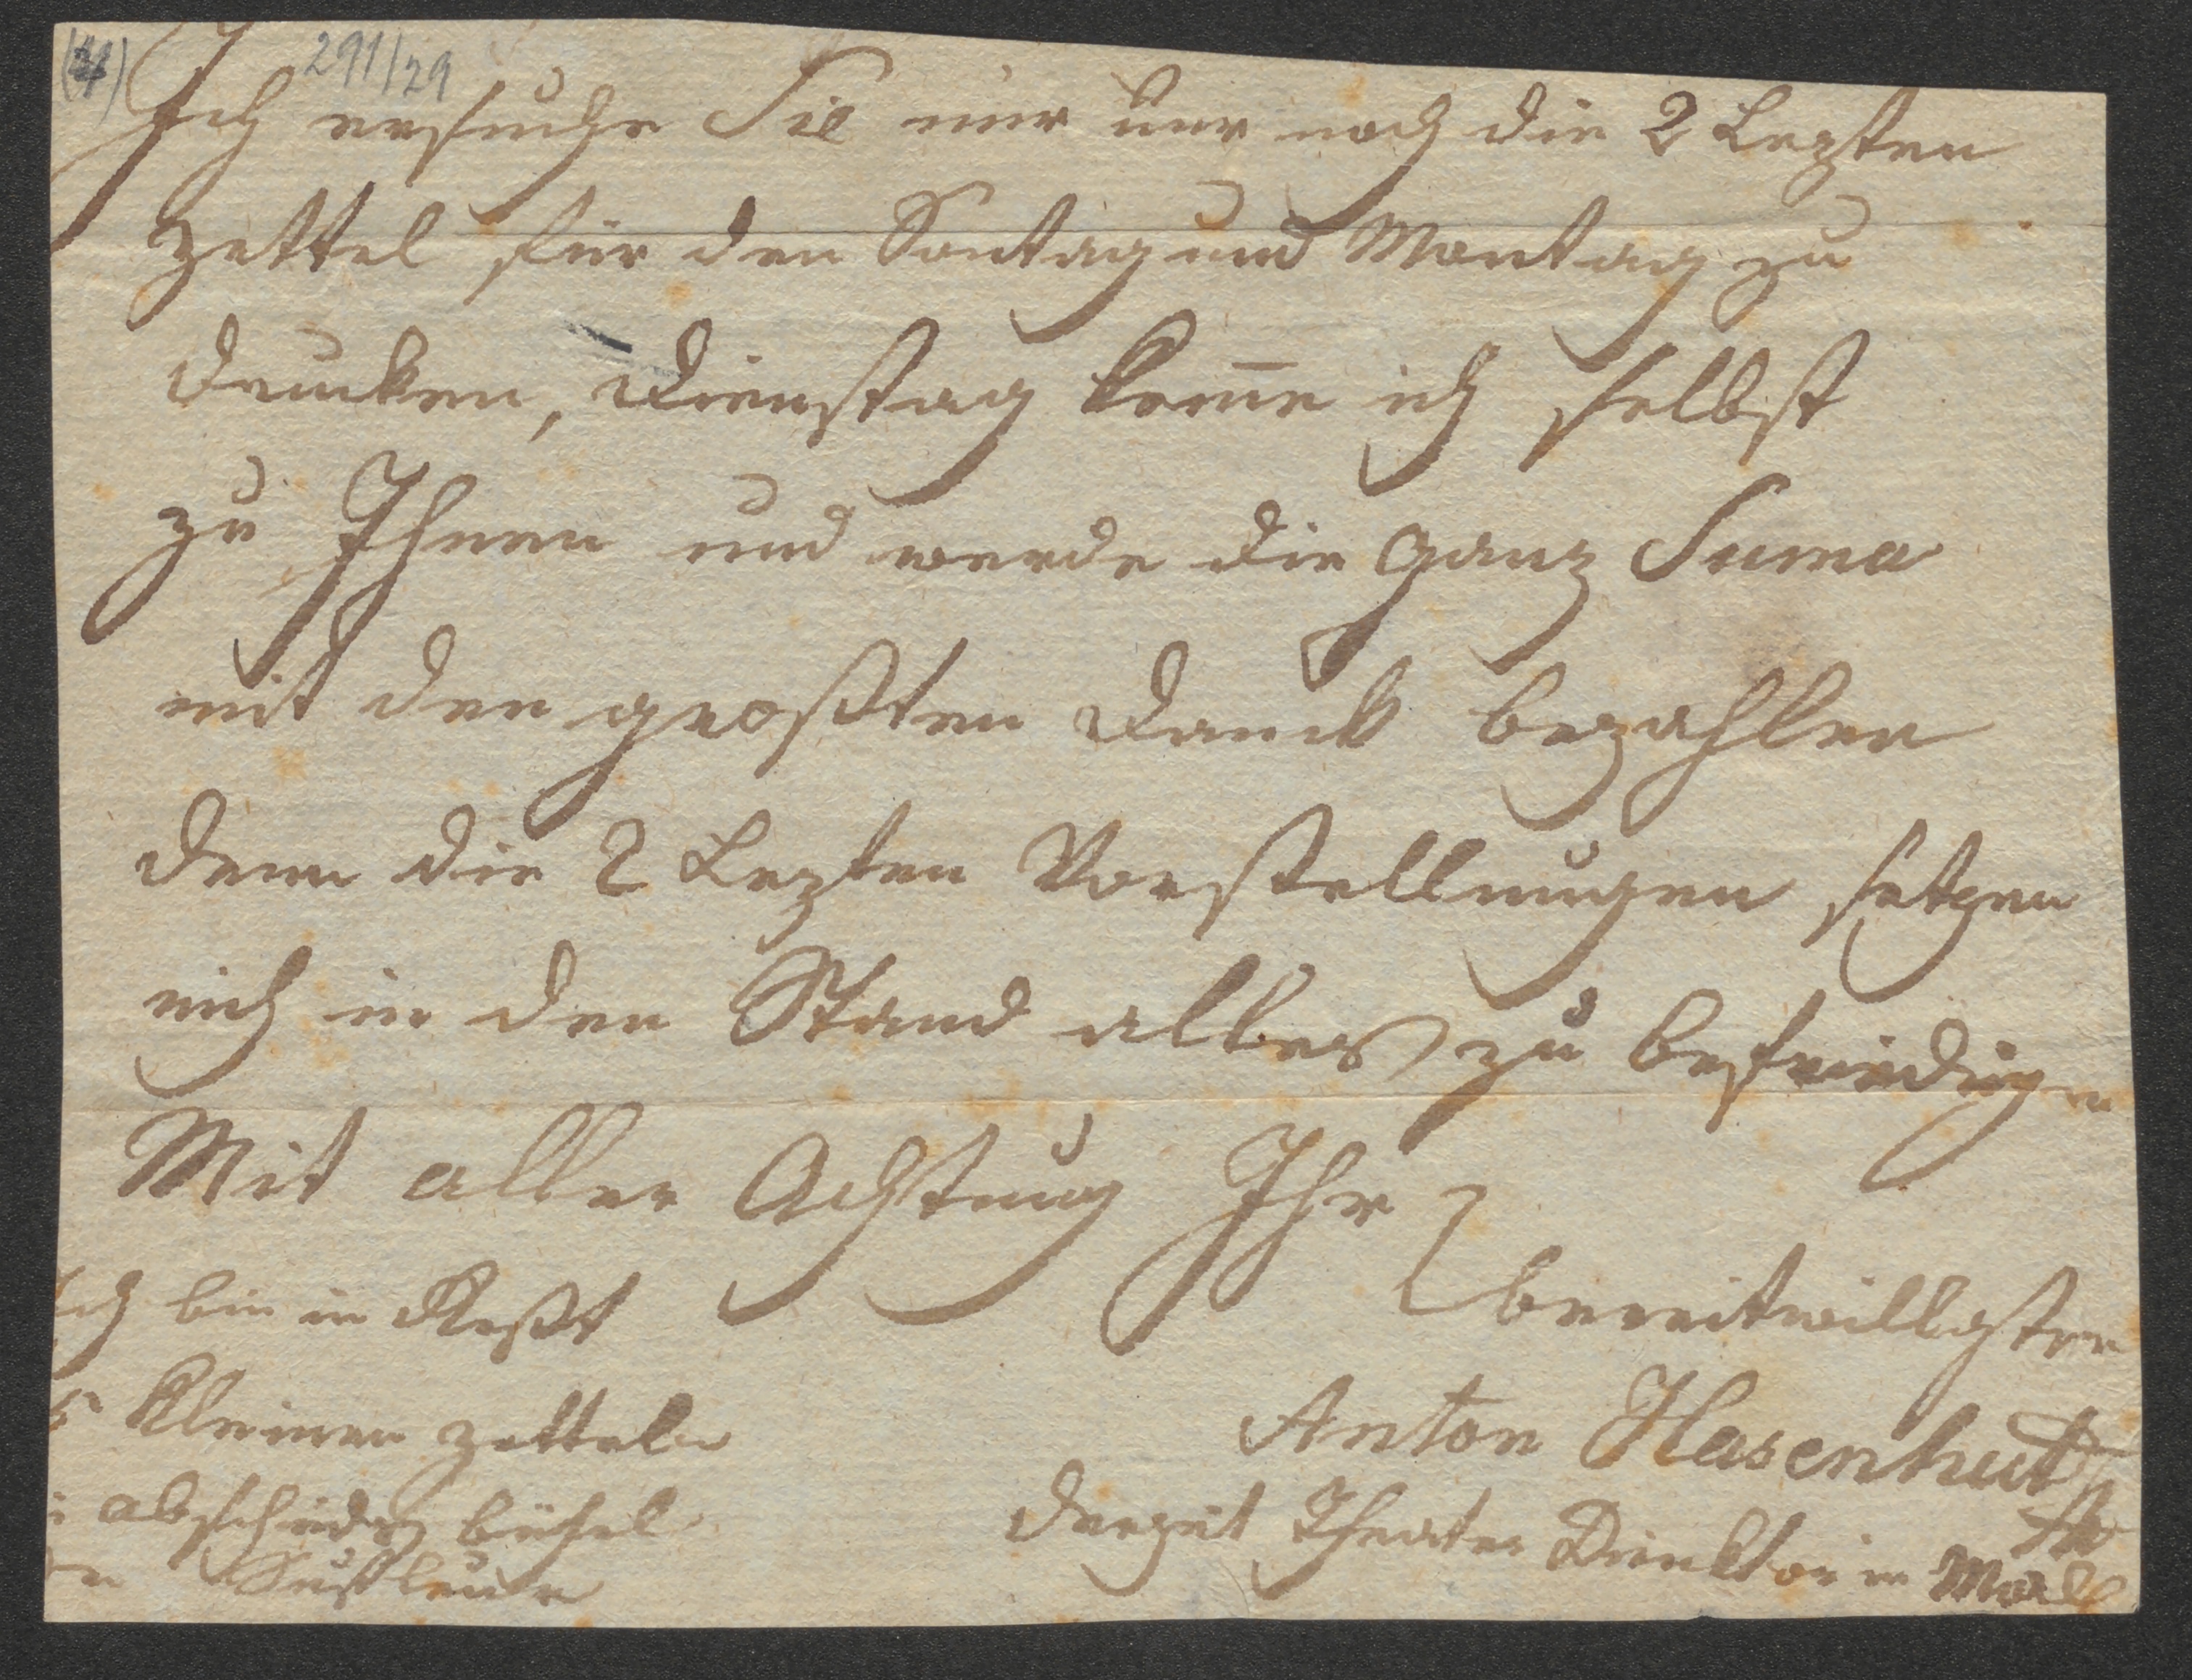 (4) 291/29
Ich ersuche Sie mir nur noch die 2 Lezten
Zettel für den Sontag und Montag zu
drucken, Dienstag kom̄e ich selbst
zu Ihnen und werde die ganz Suma
mit den großten Danck bezahlen
denn die 2 Lezten Vorstellungen setzen
mich in den Stand alles zu befriedigen
Mit aller Achtung Ihr
bereitwilligster
Anton Hasenhut
derzeit Theater Direktor in
Ich bin in Rest
kleinen Zetteln
abschieds